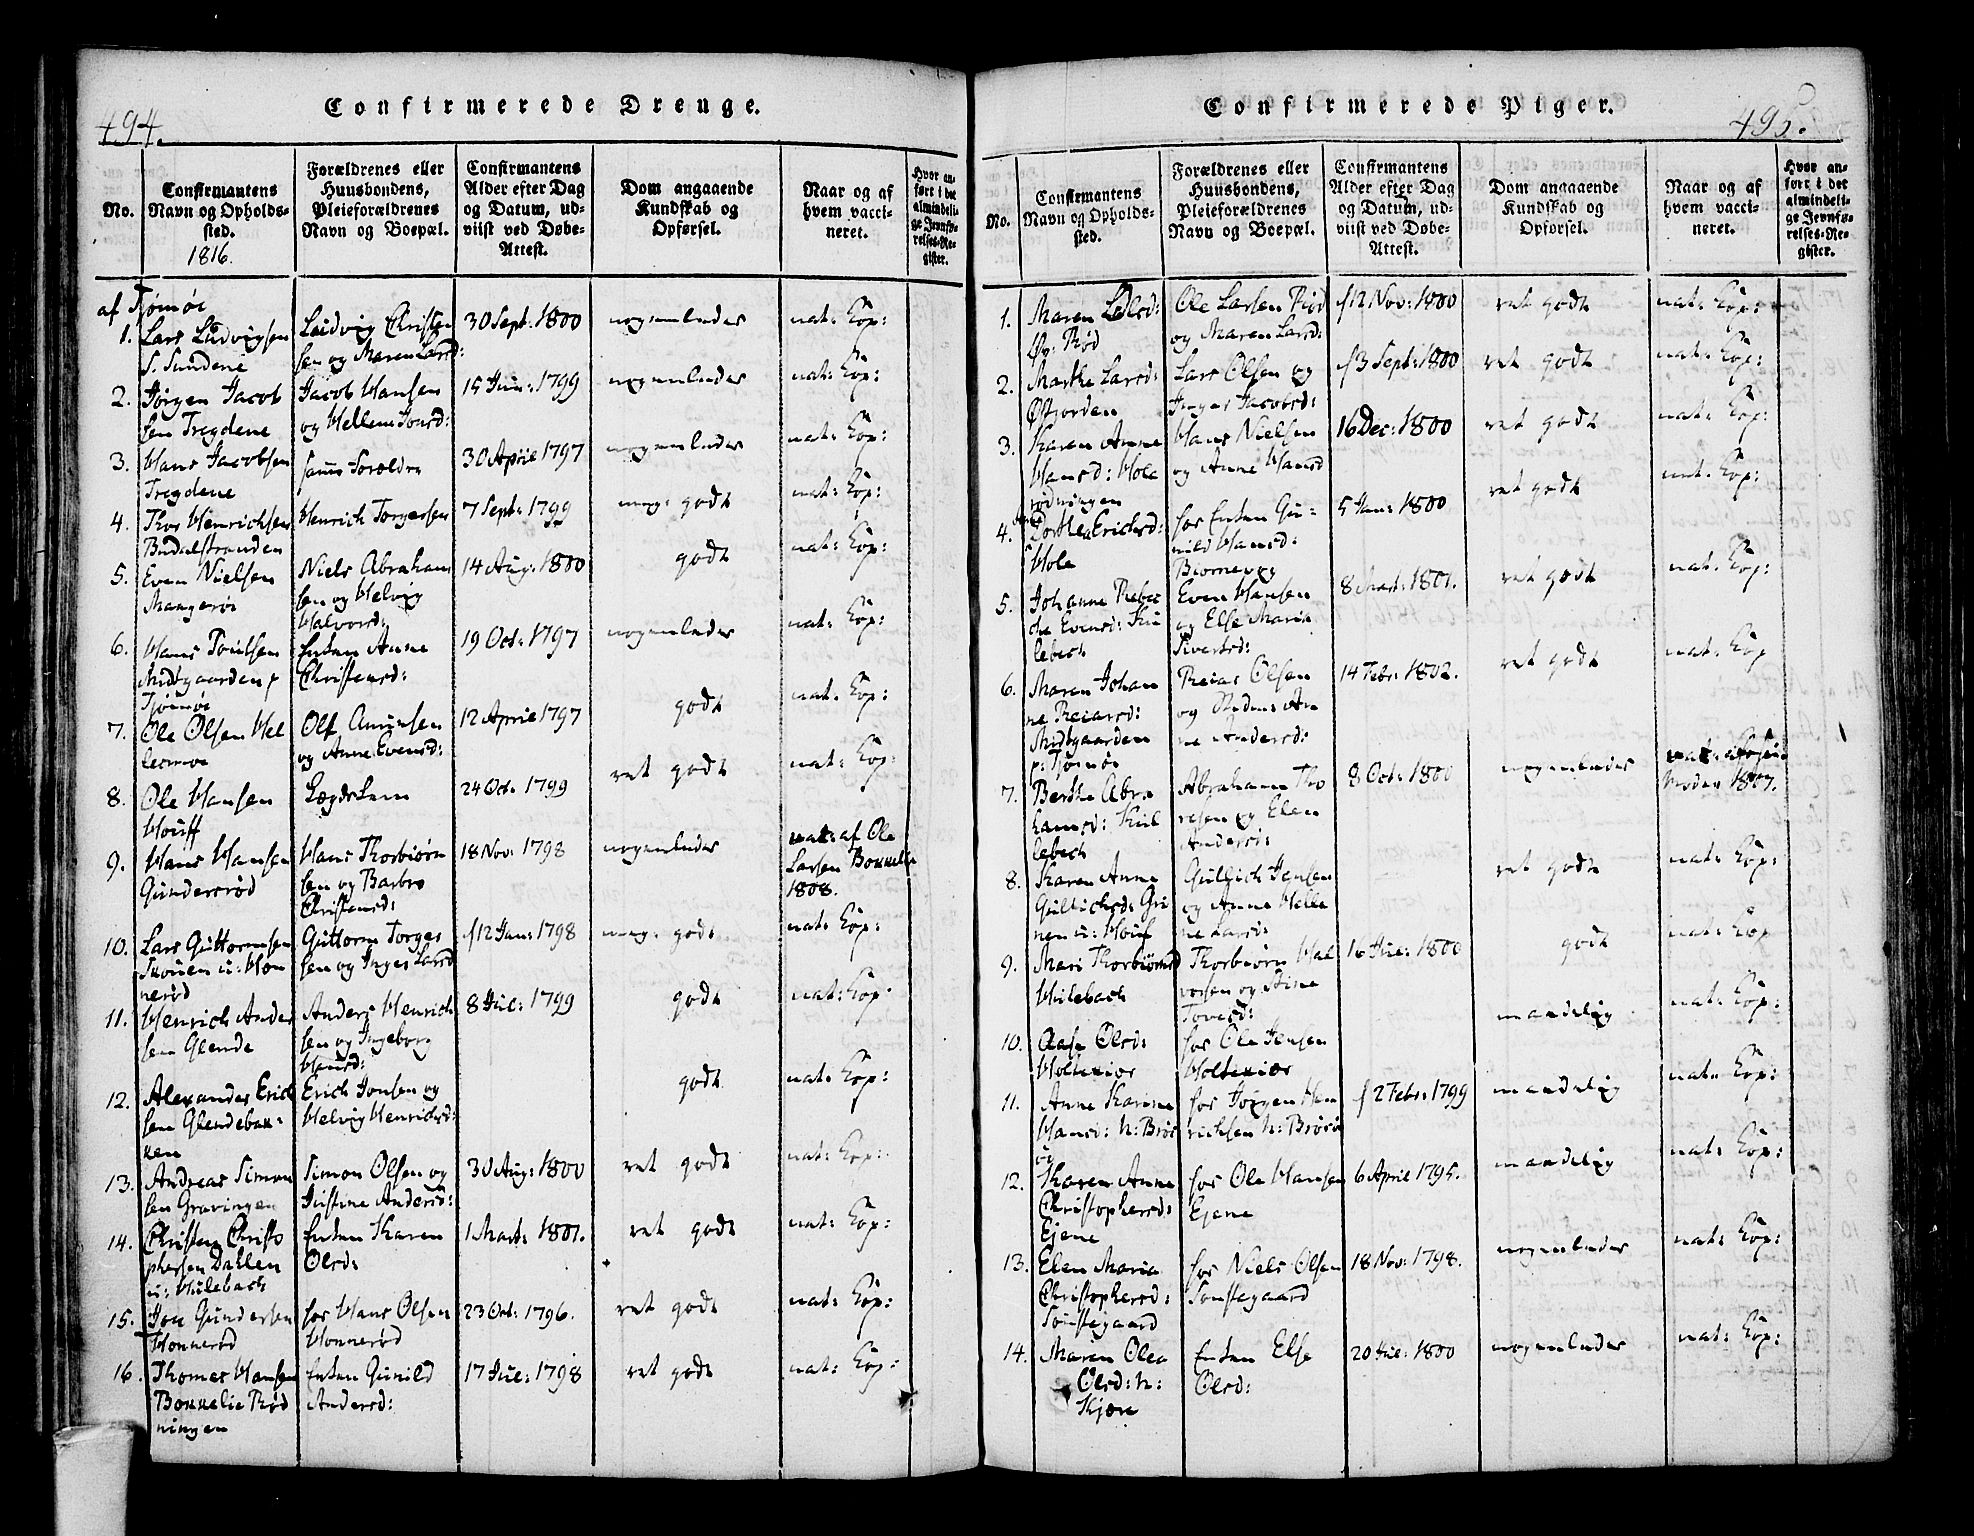 494.
Confirmerede Drenge.
No.
Confirmantens
Navn og Opholds-
sted.
1816.
Forældrenes eller
Huusbondens,
Pleieforældrenes
Navn og Boepæl.
Confirmantens
Alder efter Dag
og Datum, ud-
viist ved Døbe-
Attest.
Dom angaaende
Kundskab og
Opførsel.
Naar og af
hvem vacci-
neret.
Hvor an-
ført i det
almindeli-
ge Jevnfø-
relses-Re-
gister.
af Tjømøe
1. Lars Ludvigsen
S. Sundene
Ludvig Christen
sen og Maren Larsd:
30 Sept: 1800
nogenledes
nat: Kop:
2. Jørgen Jacob
sen Tregdene
Jacob Hansen
og Hellene Jonsd:
15 Jun: 1799
nogenledes
nat: Kop:
3. Hans Jacobsen
Tregdene
samme Forældre
30 April 1797
nogenledes
nat: Kop:
4. Thor Henrichsen
Budalstranden
Henrich Torgersen
7 Sept: 1799
mog: godt
nat: Kop:
5. Even Nielsen
Mangerøe
Niels Abraham
sen og Helvig
Halvorsd:
14 Aug: 1800
godt
nat: Kop:
6. Hans Poulsen
Midtgaarden p
Tjømøe
Enken Anne
Christensd:
19 Oct: 1797
nogenledes
nat: Kop:
7. Ole Olsen Hel
lesmoe
Ole Amunsen
og Anne Evensd:
12 April 1797
godt
nat: Kop:
8. Ole Hansen
Houff
Lægdslem
24 Oct: 1799
ret godt
nat: Kop:
9. Hans Hansen
Gundersrød
Hans Thorbiørn
sen og Barbro
Christensd:
18 Nov: 1798
nogenledes
vac: af Ole
Larsen Bonnelie
1808.
10. Lars Guttormsen
Skouen u: Hon
nerød
Guttorm Torger
sen og Inger Larsd
12 Jan: 1798
meg: godt
nat: Kop:
11. Henrich Ander
sen Glende
Anders Henrich
sen og Ingeborg
Hansd:
8 Jul: 1799
godt
nat: Kop:
12. Alexander Erich
sen Glendebak-
ken
Erich Jonsen og
Helvig Henrichsd:
godt
nat: Kop:
13. Andreas Simon
sen Gravingen
Simon Olsen og
Justine Andersd:
30 Aug: 1800
ret godt
nat: Kop:
14. Christen Christo
phersen Dahlen
u: Hulebach
Enken Karen
Olsd:
1 Mart: 1801.
ret godt
nat: Kop:
15. Jon Gundersen
Honnerød
for Hans Olsen
Honnerød
23 Oct: 1796.
ret godt
nat: Kop:
16. Thomas Hansen
Bonnelie Rød
ningen
Enken Gunild
Andersd:
17 Jul: 1798
ret godt
nat: Kop:
495.
Confirmerede Piger.
No.
Confirmantens
Navn og Opholds-
sted.
Forældrenes eller
Huusbondens,
Pleieforældrenes
Navn og Boepæl.
Confirmantens
Alder efter Dag
og Datum, ud-
viist ved Døbe-
Attest.
Dom angaaende
Kundskab og
Opførsel.
Naar og af
hvem vacci-
neret.
Hvor an-
ført i det
almindeli-
ge Jevnfø-
relses-Re-
gister.
1. Maren Olsd:
Øv: Rød
Ole Larsen Rød
og Maren Larsd:
12 Nov: 1800
ret godt
nat: Kop:
2. Marthe Larsd:
Østjorden
Lars Olsen og
Inger Jacobsd:
3 Sept: 1800
ret godt
nat: Kop:
3. Karen Anne
Hansd: Hole
rødningen
Hans Nielsen
og Anne Hansd
16 Dec: 1800
ret godt
nat: Kop:
4. Dorthea Erichsd:
Hole
for Enken Gu-
nild Hansd:
Biørnevog
5 Jan: 1800
ret godt
nat: Kop:
5. Johanne Rebec
che Evensd: Kru
lebech
Even Hansen
og Else Maria
Siversd:
8 Mart: 1801.
ret godt
nat: Kop:
6. Maren Johan
ne Reiarsd:
Midtgaarden
p: Tjømøe
Reiar Olsen
og An
ne Andersd:
14 Febr: 1802.
ret godt
nat: Kop
7. Berthe Abra
hamsd: Kul
lebech
Abraham Tho
resen og Elen
Andersd:
8 Oct: 1800
nogenledes
vac: af
1807.
8. Karen Anne
Gullichsd: Gri
nen u: Houf
Gullich Jensen
og Anne Helle
ne Larsd:
ret godt
nat: Kop:
9. Mari Thorbiørnsd
Hulebach
Thorbiørn Hal
vorsen og Stine
Tovesd:
16 Jul: 1800
godt
nat: Kop
10. Aase Olsd:
Holtekiær
for Ole Jensen
Holtekiær
maadelig
nat: Kop:
11. Anne Karine
Hansd: N: Brøt
sø
for Jørgen Hen
richsen N: Brøtsø
2 Febr: 1799
maadelig
nat: Kop:
12. Karen Anne
Christophersd:
Ejene
for Ole Hansen
Ejene
6 April 1795.
maadelig
nat: Kop:
13. Elen Maria
Christophersd:
Sønstegaard
for Niels Olsen
Sønstegaard
18 Nov: 1798.
nogenledes
nat: Kop:
14. Maren Olea
Olsd: N:
Kjære
Enken Else
Olsd:
20 Jul: 1800
nogenledes
nat: Kop: